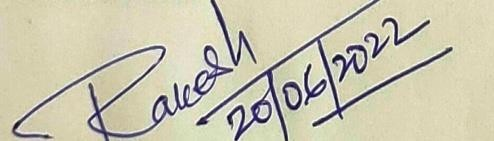 Rakesh
20/06/2022